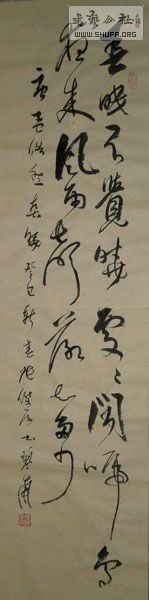 书艺公社
WWW.SHUFA.ORG
春眠不覺曉處〻聞啼鳥
夜来風雨聲花落知多少
唐孟浩然春曉癸巳新春